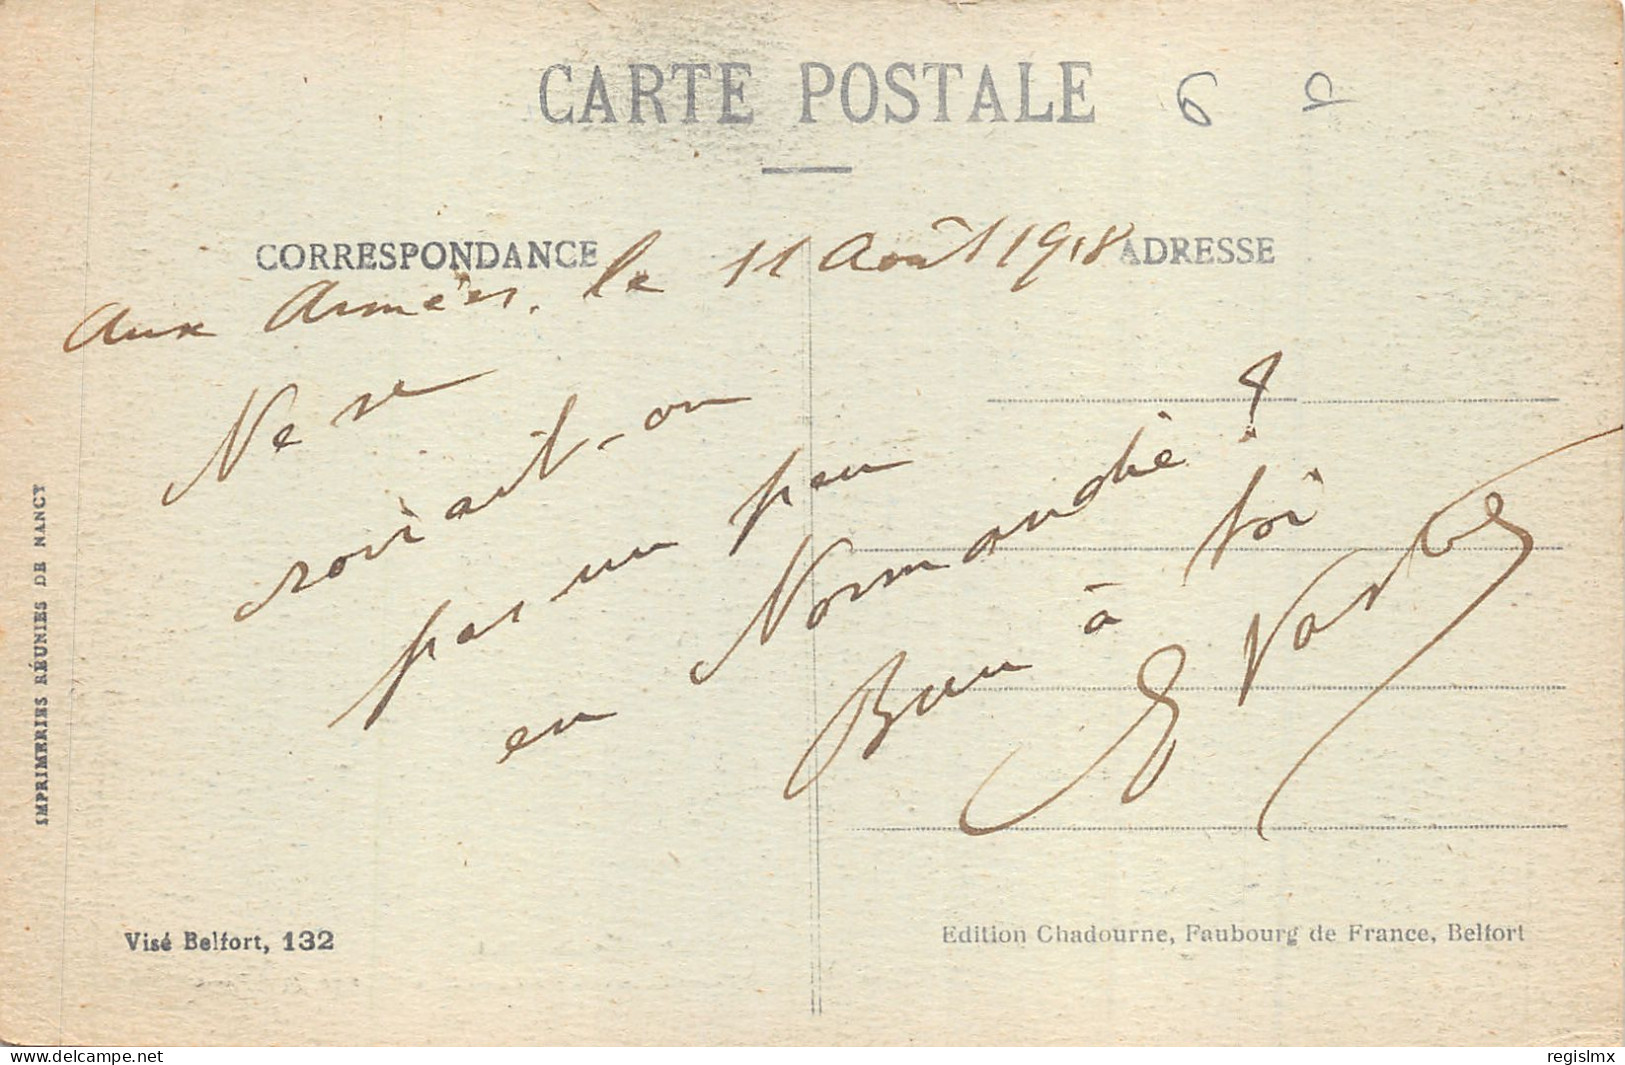 CARTE POSTALE
CORRESPONDANCE
ADRESSE
Aux Armées, le 11 Août 1918
Ne se
croirait-on
pas un peu
en Normandie ?
Bien à toi
IMPRIMERIES RÉUNIES DE NANCY
Visé Belfort, 132
Edition Chadourne, Faubourg de France, Belfort
www.delcampe.net
regislmx